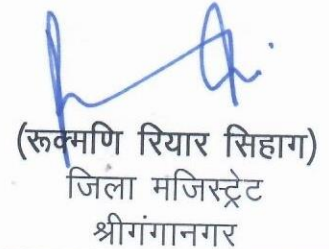 (रूक्मणि रियार सिहाग)
जिला मजिस्ट्रेट
श्रीगंगानगर